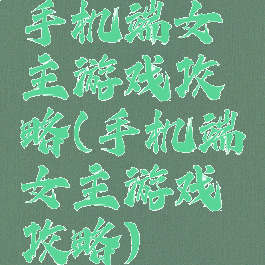 手机端女
主游戏攻
略(手机端
女主游戏
攻略)